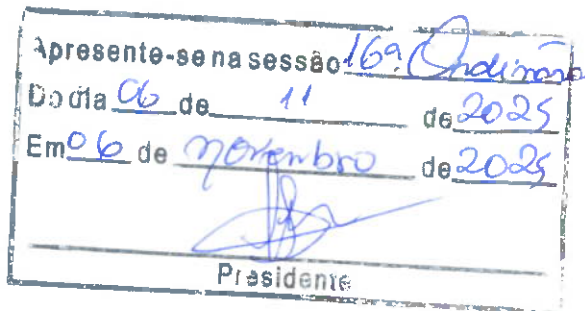 Apresente-se na sessão 169ª Ordinária
Do dia 06 de 11 de 2025
Em 06 de novembro de 2025
Presidente